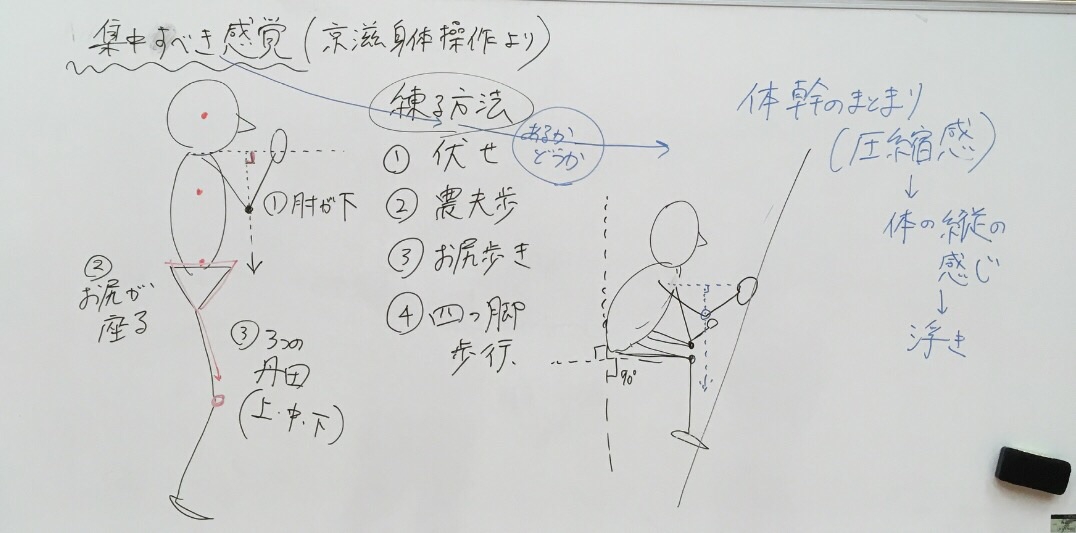 集中すべき感覚(京滋身体操作より)
①肘が下
②
お尻が
座る
③3つの
丹田
(上・中・下)
練る方法
①伏せ
②農夫歩
③お尻歩き
④四つ脚
歩行
あるか
どうか
90°
体幹のまとまり
(圧縮感)
↓
体の縦の
感じ
↓
浮き